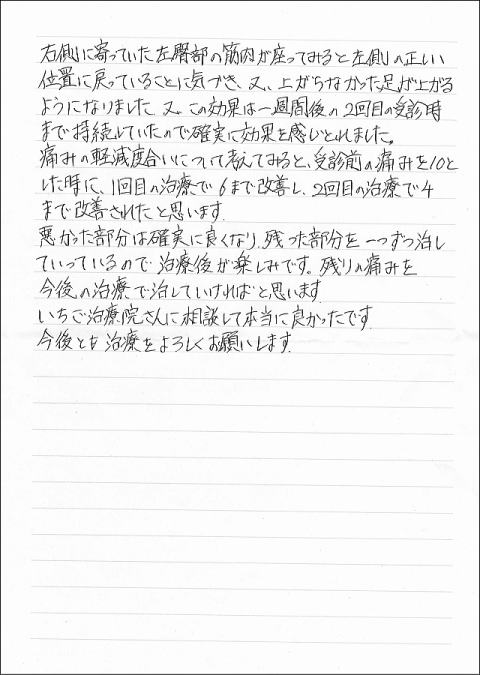 右側に寄っていた左臀部の筋肉が座ってみると左側の正しい
位置に戻っていることに気づき、又、上がらなかった足が上がる
ようになりました。又、この効果は一週間後の2回目の受診時
まで持続していたので確実に効果を感じとれました。
痛みの軽減度合いについて考えてみると、受診前の痛みを10と
した時に、1回目の治療で6まで改善し、2回目の治療で4
まで改善されたと思います。
悪かった部分は確実に良くなり、残った部分を一つずつ治し
ていっているので治療後が楽しみです。残りの痛みを
今後の治療で治していければと思います。
いちご治療院さんに相談して本当に良かったです。
今後とも治療をよろしくお願いします。